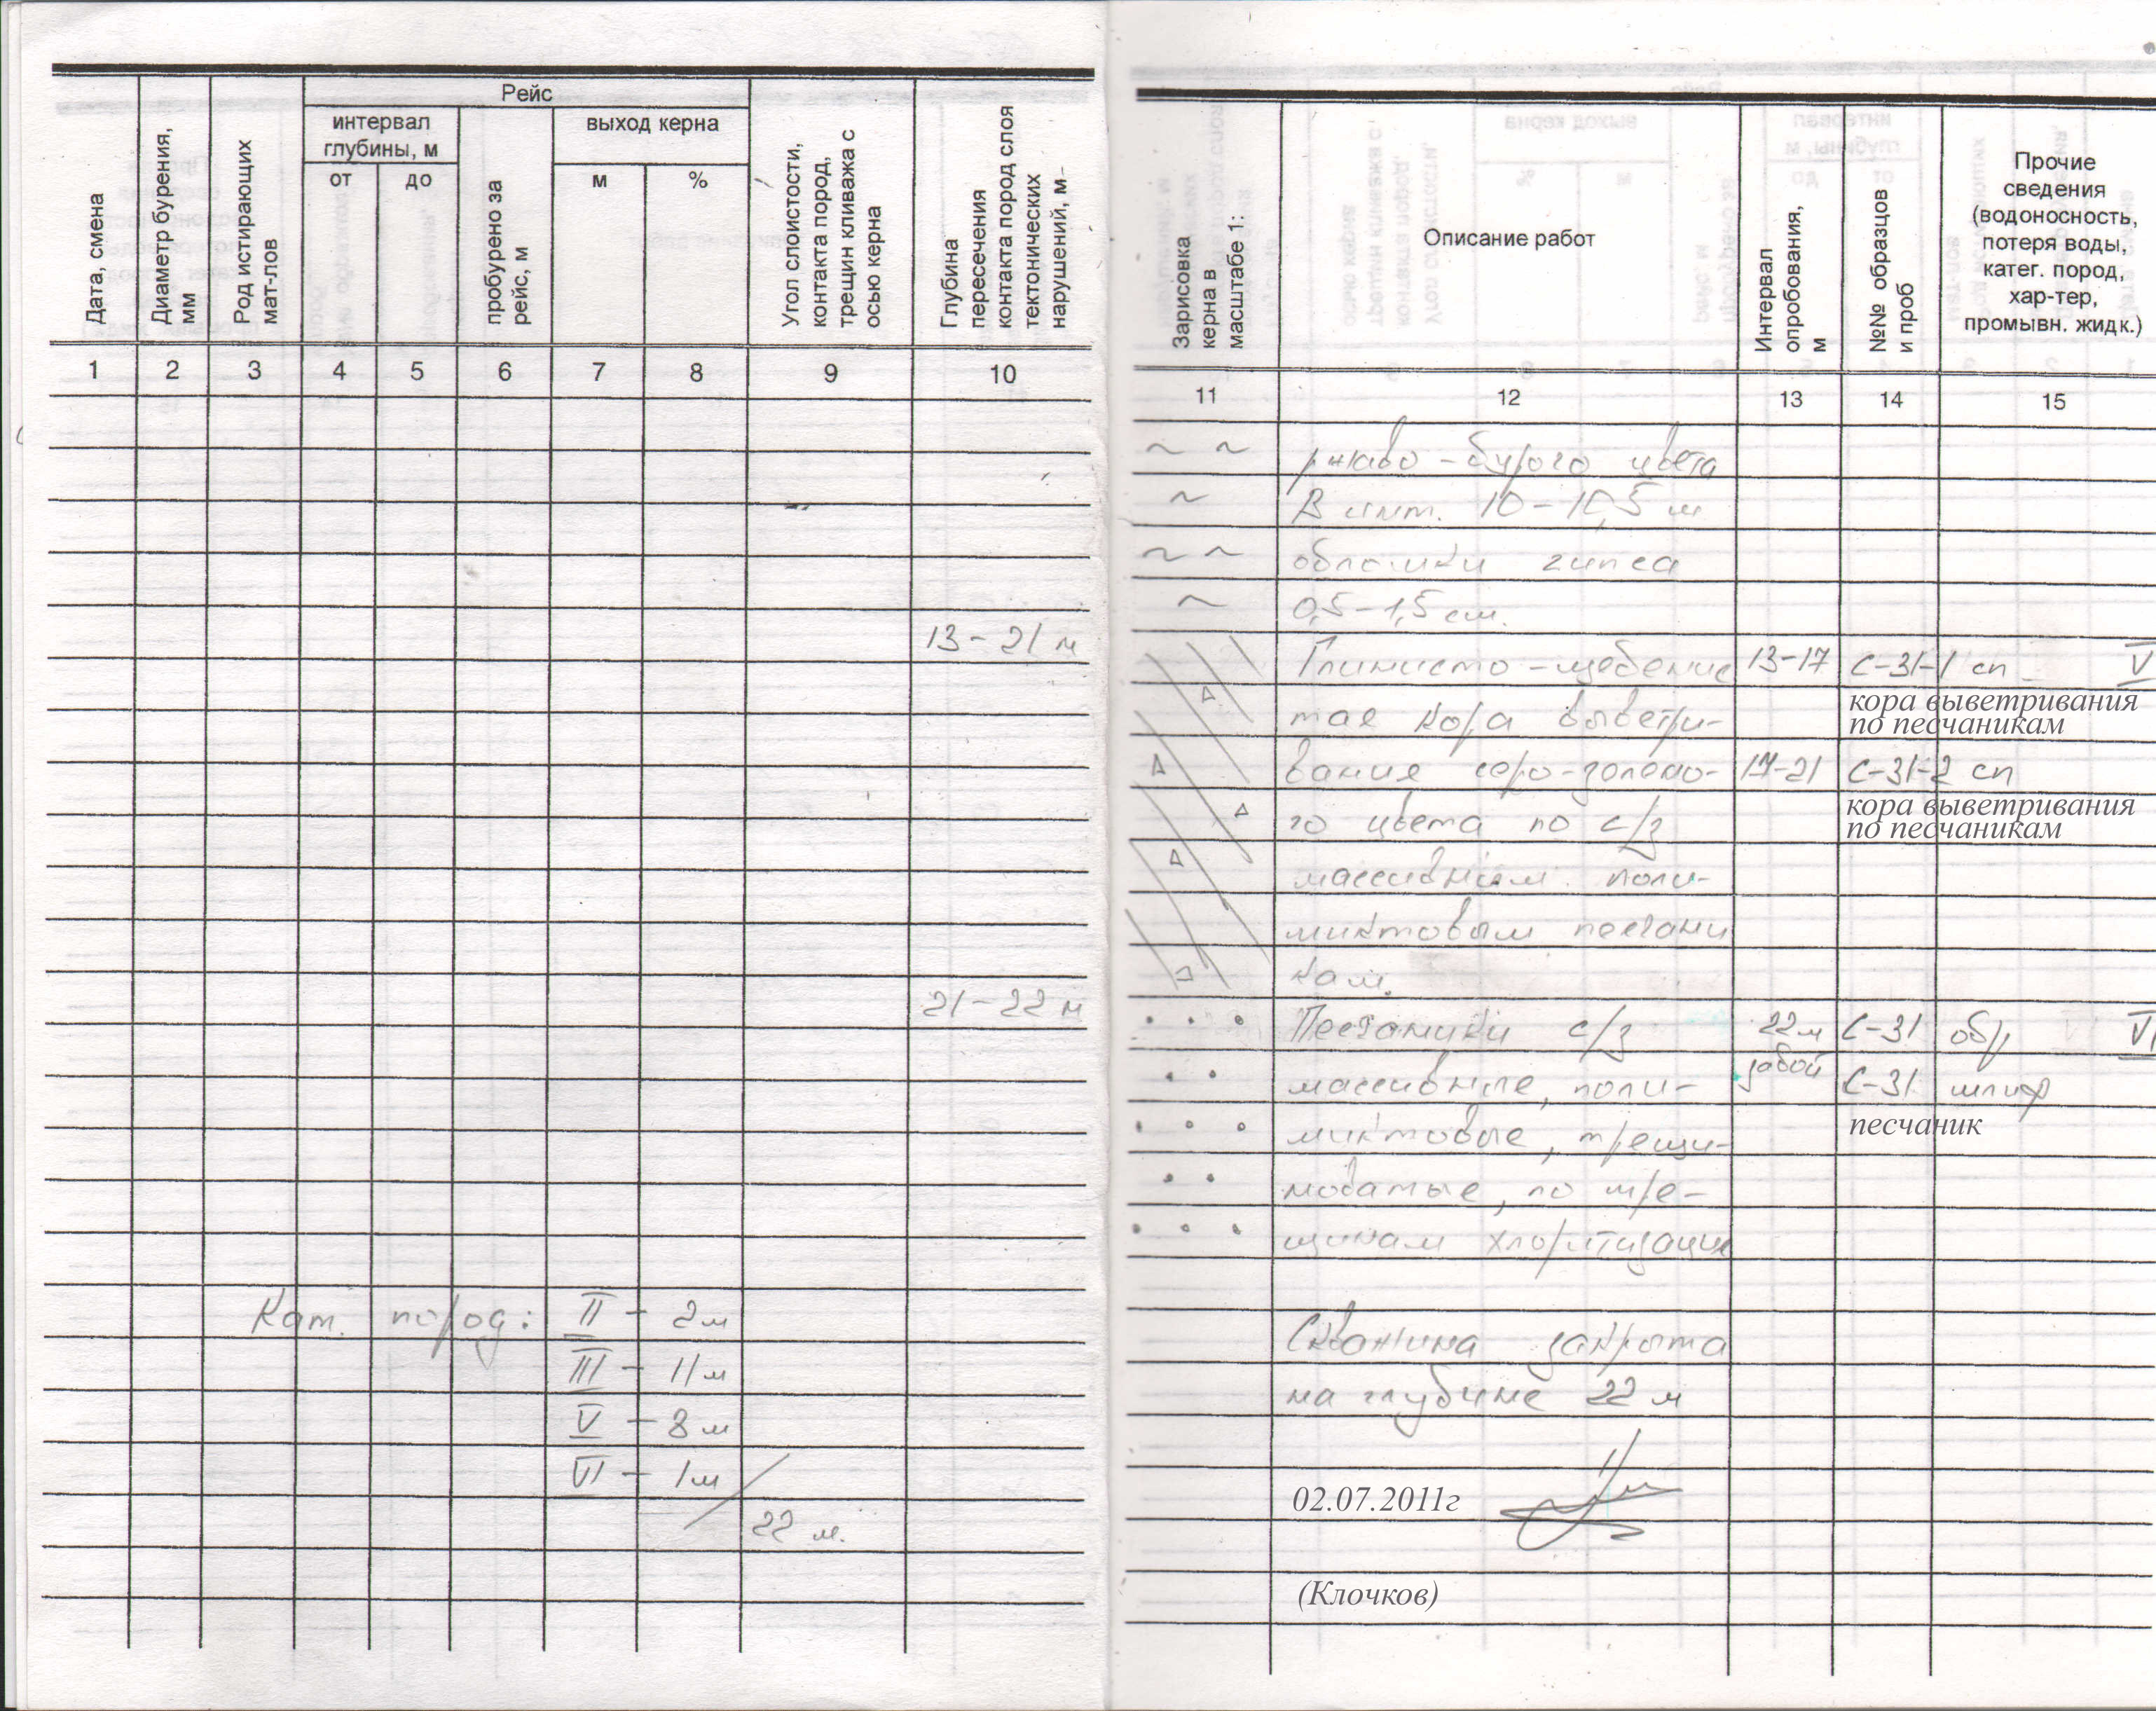 Дата, смена
Диаметр бурения, мм
Род истирающих мат-лов
Рейс
интервал глубины, м
от
до
пробурено за рейс, м
выход керна
м
%
Угол слоистости, контакта пород, трещин кливажа с осью керна
Глубина пересечения контакта пород слоя тектонических нарушений, м
1 2 3 4 5 6 7 8 9 10
13-21 м
21-22 м
Кат. пород: II - 2м
III - 11м
V - 8м
VI - 1м
22 м.
Зарисовка керна в масштабе 1:
Описание работ
Интервал опробования, м
№№ образцов и проб
Прочие
сведения
(водоносность,
потеря воды,
катег. пород,
хар-тер,
промывн. жидк.)
11 12 13 14 15
ржаво-бурого цвета
В инт. 10-10,5 м
обломки гипса
0,5-1,5 см.
Глинисто-щебенис 13-17 С-31-1 сп V
тая кора выветри-
кора выветривания
по песчаникам
вания серо-зелено- 17-21 С-31-2 сп
го цвета по с/з
кора выветривания
по песчаникам
массивным поли-
миктовым песчани
кам.
Песчаники с/з 22м С-31 обр VI
массивные, поли- забой С-31 шлиф
миктовые, трещи- песчаник
новатые, по тре-
щинам хлоритизация
Скважина закрыта
на глубине 22 м
02.07.2011г
(Клочков)